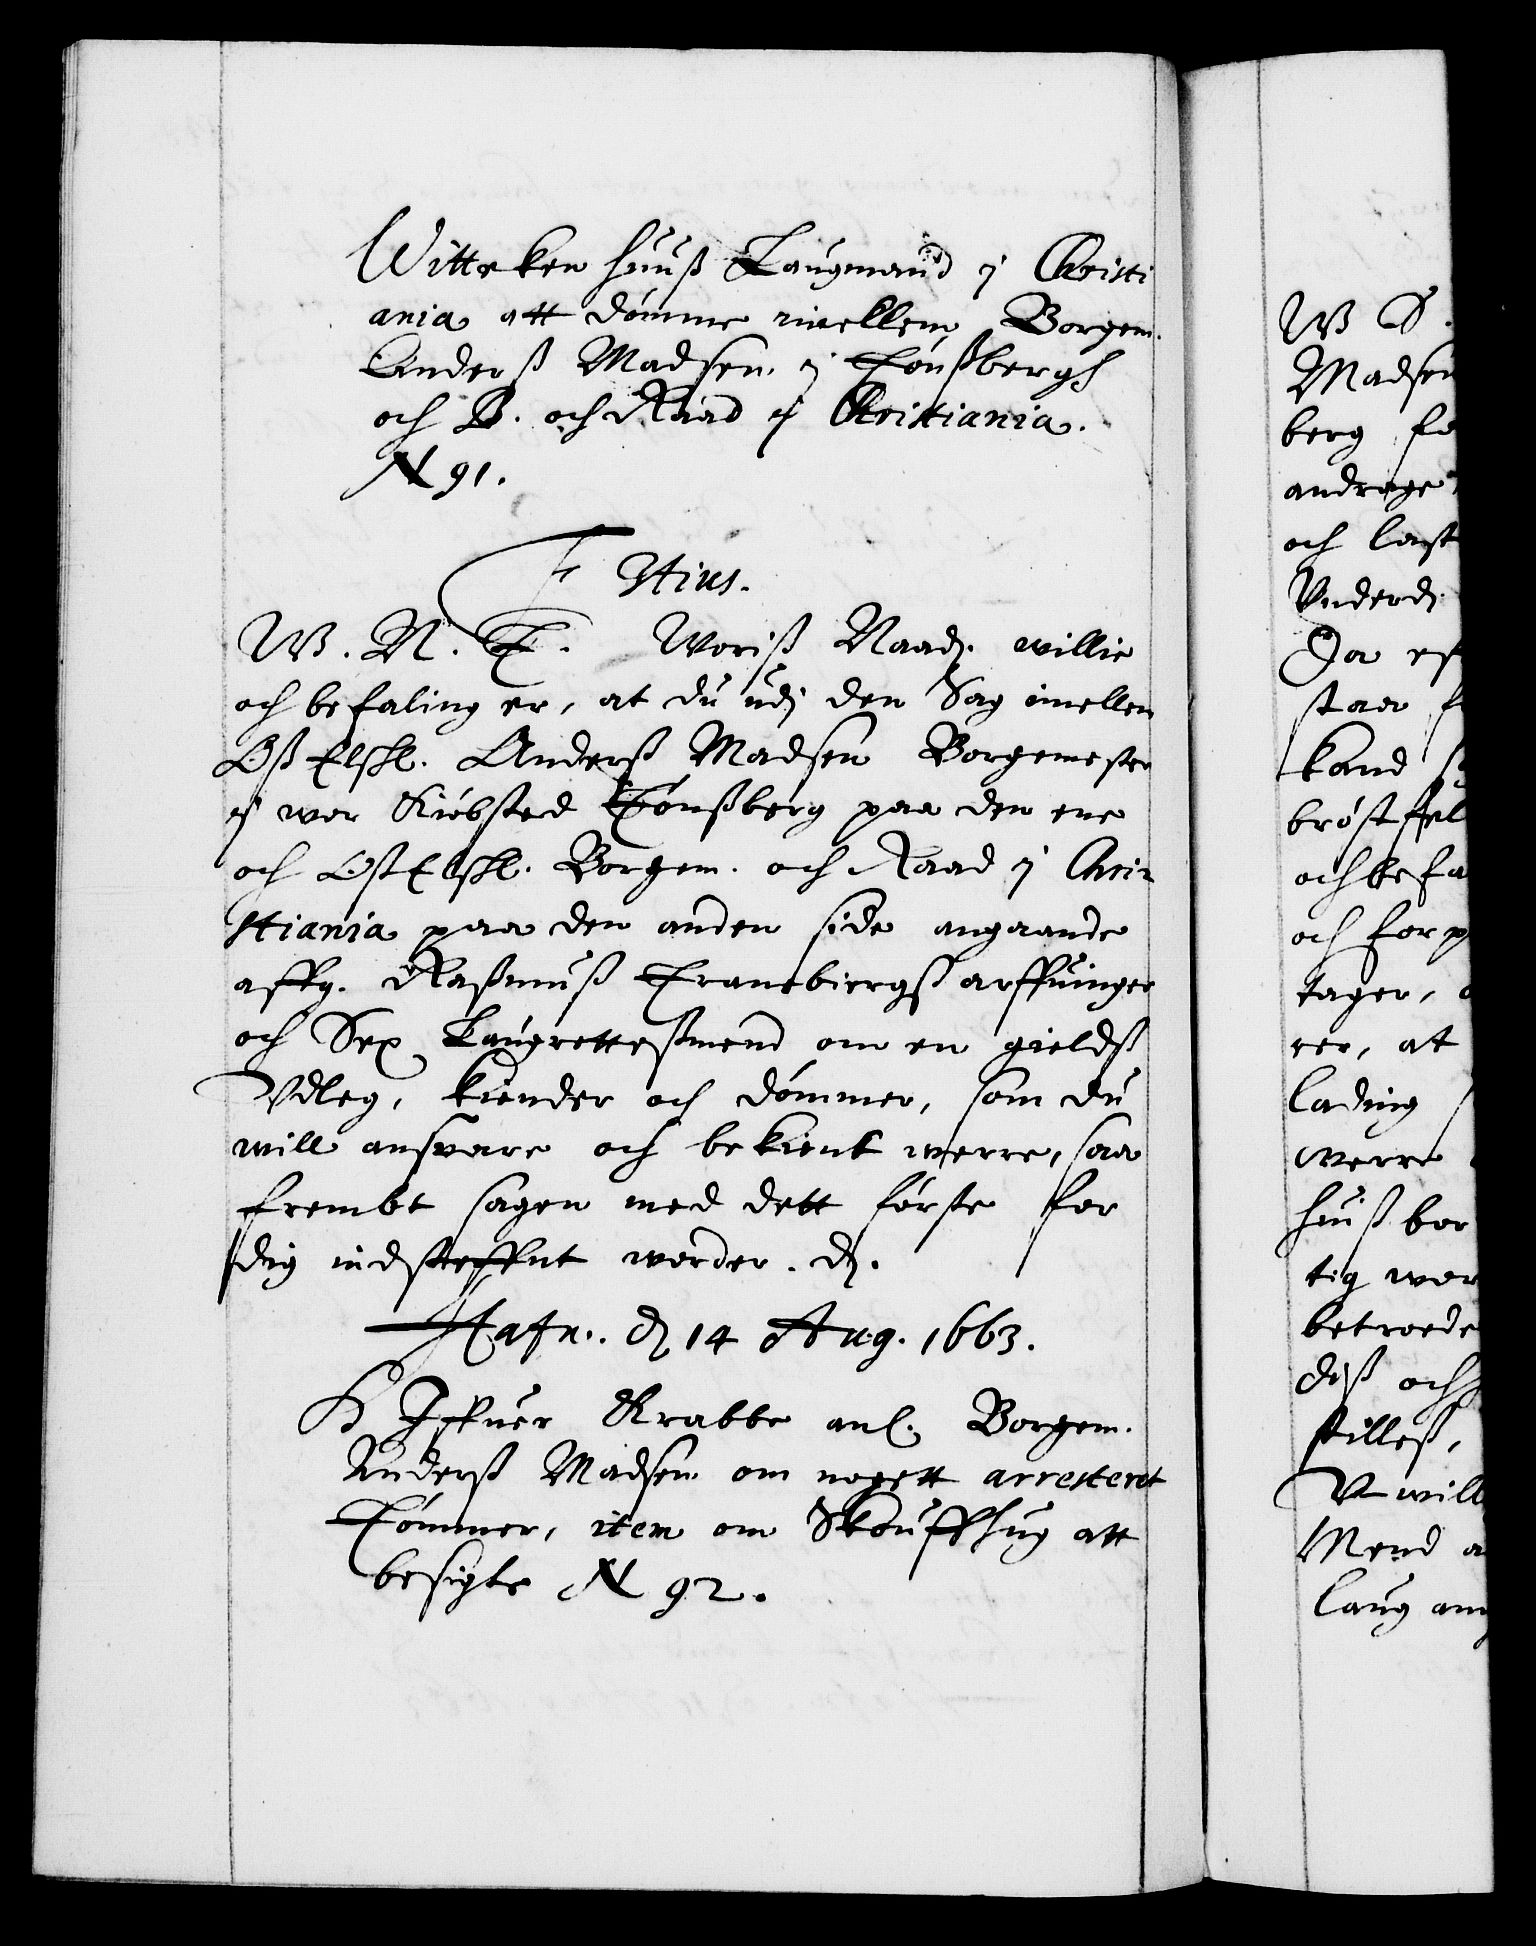 Witteken Huuß Laugmand j Christi
ania att dömme imellem Borgem.
Anderß Madsen j Tönßbergh
och B. och Raad j Christiania.
N 91.
F Stius.
W. N. T. Woriß Naadj. willie
och befaling er, at du udj den Sag imellem
Oß Elskl. Anderß Madsen Borgemester
j wor Kiöbsted Tönßberg paa den ene
och Oß Elskl. Borgem. och Raad j Chri
stiania paa den anden side angaande
affg. Raßmuß Tranebiergß arffuinger
och Sex Laugretteßmend om en gieldß
Vdleg, kiender och dömmer, som du
will ansvare och bekient werre, saa
frembt sagen med dett förste for
dig indsteffnt worder. dj.
Hafn. dj 14 Aug. 1663.
H Iffuer Krabbe anl. Borgem.
Anderß Madsen om nogett arresteret
Tömmer, item om Skouffhug att
besigte N 92.
W S.
Madsen
berg
andrage
och last
Vnderdj
Da
staa
kand
bröstfel
och befa
och for
tager,
rer, at
lading
werre
huiß bor
tig wer
betroede
diß och
stilleß,
V will
Mend
laug